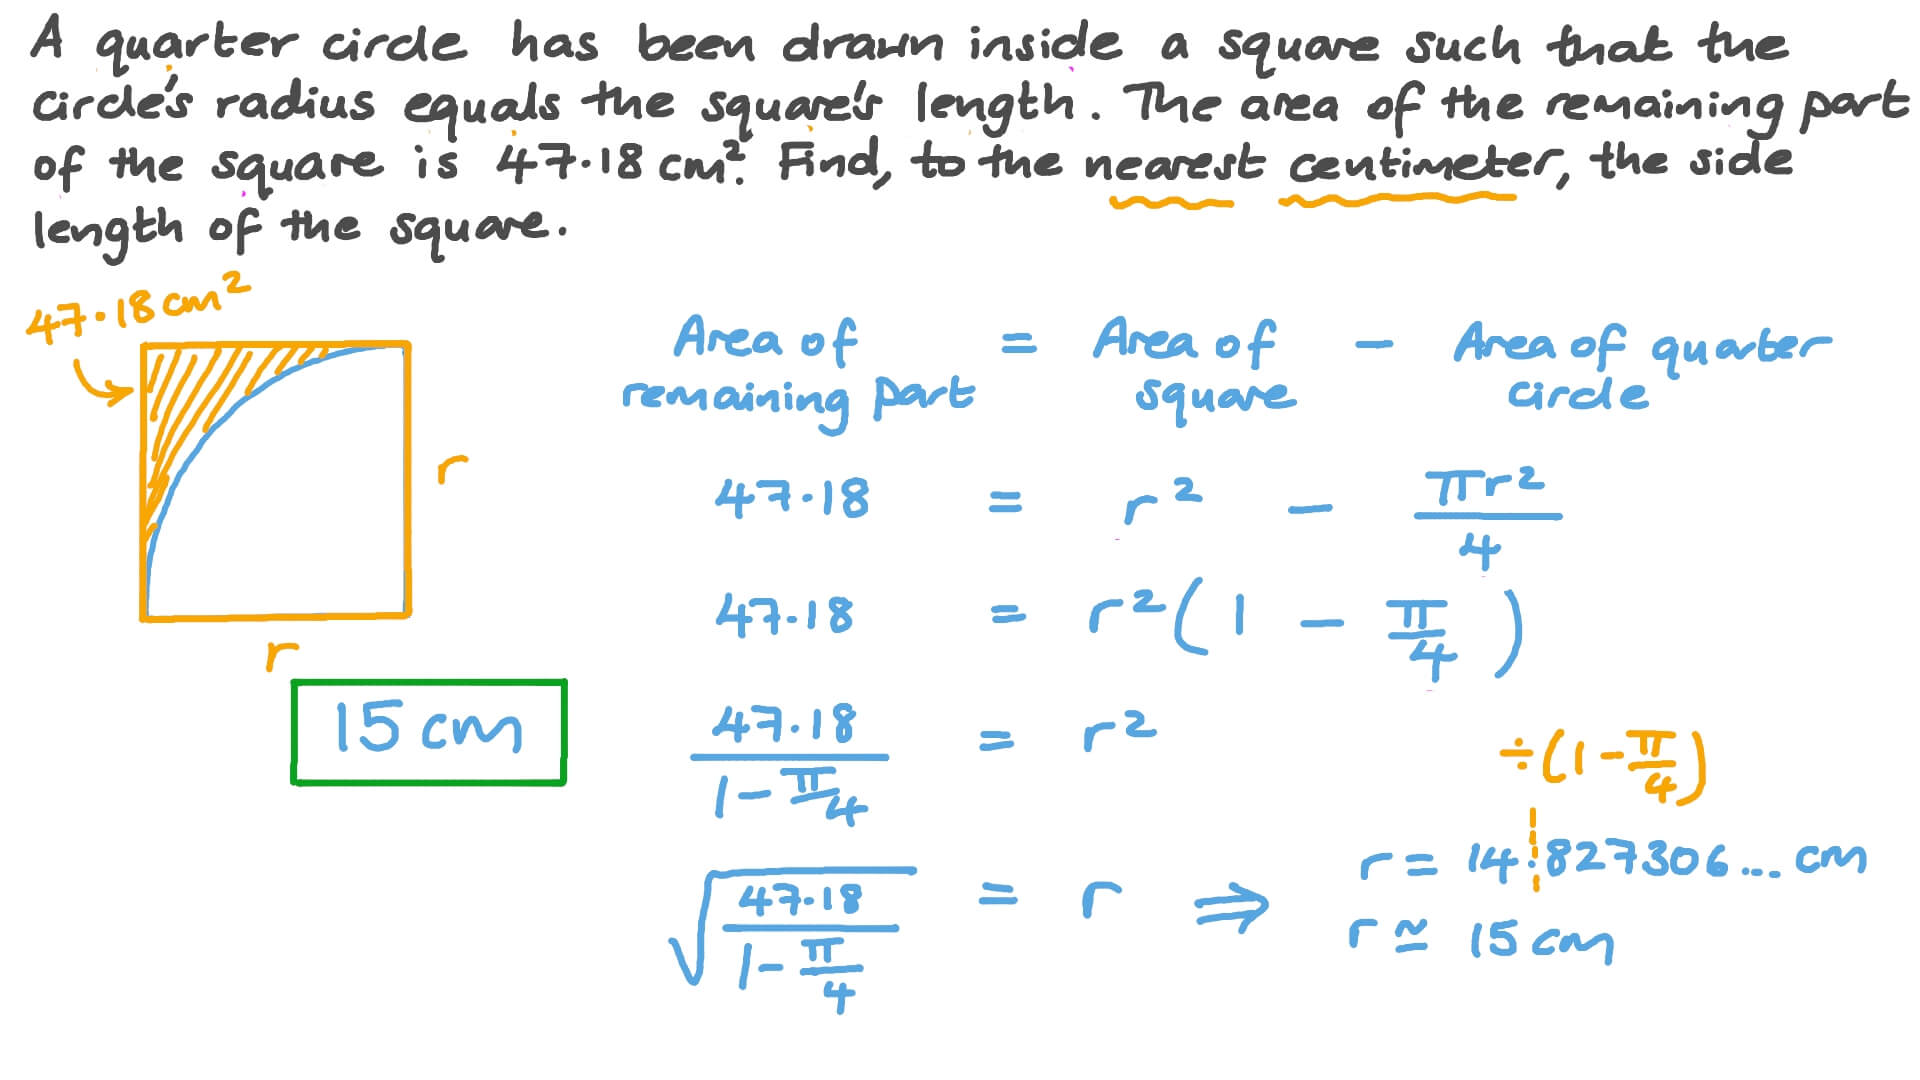 A quarter circle has been drawn inside a square such that the
circle's radius equals the square's length. The area of the remaining part
of the square is 47.18 cm². Find, to the nearest centimeter, the side
length of the square.
47.18 cm²
r
r
15 cm
Area of remaining part = Area of square - Area of quarter circle
47.18 = r² - πr²/4
47.18 = r²(1 - π/4)
47.18/(1 - π/4) = r²
÷(1 - π/4)
√(47.18/(1 - π/4)) = r ⇒ r = 14.827306... cm
r ≃ 15 cm